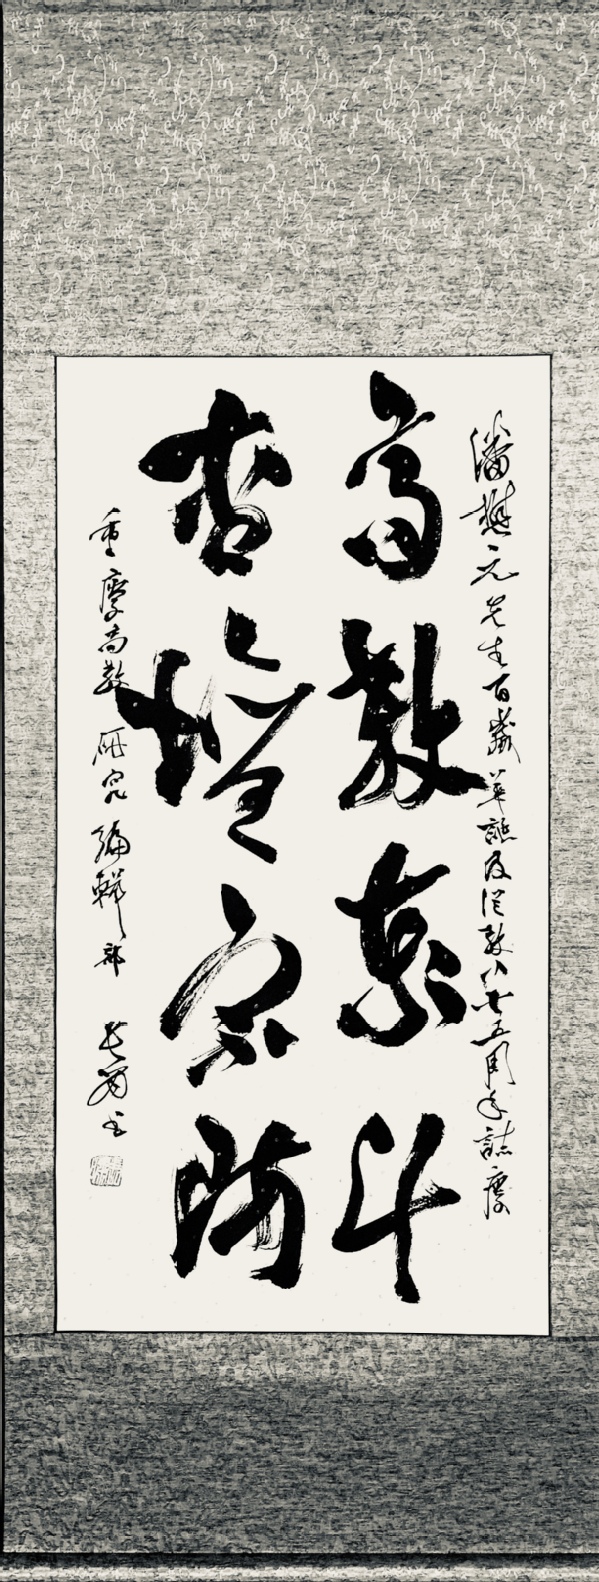 潘懋元先生百歲華誕及從教八十五周年誌慶
高教泰斗
杏壇宗師
重慶高教研究編輯部